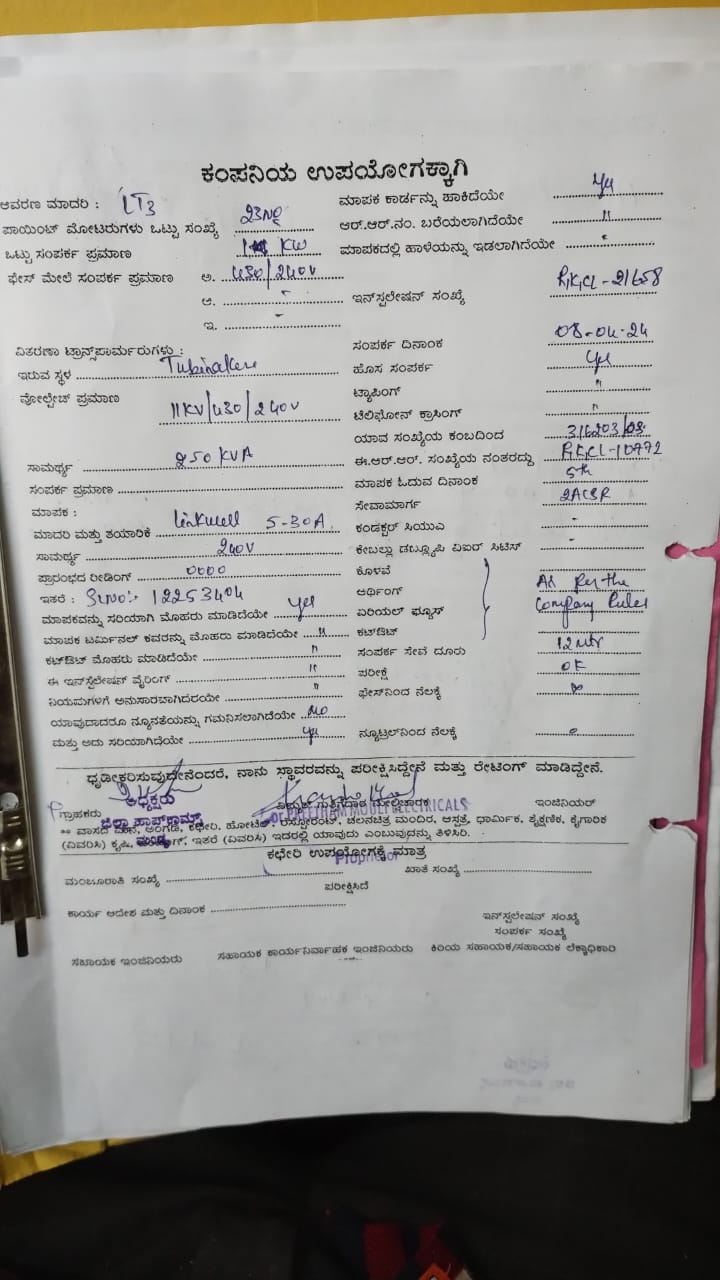 ಕಂಪನಿಯ ಉಪಯೋಗಕ್ಕಾಗಿ
ಆವರಣ ಮಾದರಿ : LT3 ಮಾಪಕ ಕಾರ್ಡನ್ನು ಹಾಕಿದೆಯೇ Yes
ಪಾಯಿಂಟ್ ಮೋಟರುಗಳು ಒಟ್ಟು ಸಂಖ್ಯೆ 23No ಆರ್.ಆರ್.ನಂ. ಬರೆಯಲಾಗಿದೆಯೇ "
ಒಟ್ಟು ಸಂಪರ್ಕ ಪ್ರಮಾಣ KW ಮಾಪಕದಲ್ಲಿ ಹಾಳೆಯನ್ನು ಇಡಲಾಗಿದೆಯೇ "
ಫೇಸ್ ಮೇಲೆ ಸಂಪರ್ಕ ಪ್ರಮಾಣ ಅ. 430/240V
ಆ. - ಇನ್‌ಸ್ಟಲೇಷನ್ ಸಂಖ್ಯೆ 21658
ಇ. -
ವಿತರಣಾ ಟ್ರಾನ್ಸ್‌ಪಾರ್ಮರುಗಳು : ಸಂಪರ್ಕ ದಿನಾಂಕ 08-04-24
ಇರುವ ಸ್ಥಳ Tubinakere ಹೊಸ ಸಂಪರ್ಕ Yes
ವೋಲ್ಟೇಜ್ ಪ್ರಮಾಣ 11KV/430/240V ಟ್ಯಾಪಿಂಗ್ "
ಟೆಲಿಫೋನ್ ಕ್ರಾಸಿಂಗ್ "
ಯಾವ ಸಂಖ್ಯೆಯ ಕಂಬದಿಂದ 316203/03
ಸಾಮರ್ಥ್ಯ 250 KVA ಈ.ಆರ್.ಆರ್. ಸಂಖ್ಯೆಯ ನಂತರದ್ದು 10772
ಸಂಪರ್ಕ ಪ್ರಮಾಣ ಮಾಪಕ ಓದುವ ದಿನಾಂಕ 5th
ಮಾಪಕ : ಸೇವಾಮಾರ್ಗ 2ACSR
ಮಾದರಿ ಮತ್ತು ತಯಾರಿಕೆ Linkwell 5-30A ಕಂಡಕ್ಟರ್ ಸಿಯುಎ -
ಸಾಮರ್ಥ್ಯ 240V ಕೇಬಲ್ಲು ಡಬ್ಲ್ಯೂಪಿ ವಿಐರ್ ಸಿಟಿಸ್ -
ಪ್ರಾರಂಭದ ರೀಡಿಂಗ್ 0000 ಕೊಳವೆ
ಇತರೆ : Sr.No:- 12253404 ಅರ್ಥಿಂಗ್ As Per the
ಮಾಪಕವನ್ನು ಸರಿಯಾಗಿ ಮೊಹರು ಮಾಡಿದೆಯೇ Yes ಏರಿಯಲ್ ಫ್ಯೂಸ್ Company Rules
ಮಾಪಕ ಟರ್ಮಿನಲ್ ಕವರನ್ನು ಮೊಹರು ಮಾಡಿದೆಯೇ " ಕಟ್‌ಔಟ್
ಕಟ್‌ಔಟ್ ಮೊಹರು ಮಾಡಿದೆಯೇ " ಸಂಪರ್ಕ ಸೇವೆ ದೂರು 12 Mtr
ಈ ಇನ್‌ಸ್ಟಲೇಷನ್ ವೈರಿಂಗ್ " ಪರೀಕ್ಷೆ OK
ನಿಯಮಗಳಿಗೆ ಅನುಸಾರವಾಗಿದೆಯೇ " ಫೇಸ್‌ನಿಂದ ನೆಲಕ್ಕೆ ∞
ಯಾವುದಾದರೂ ನ್ಯೂನತೆಯನ್ನು ಗಮನಿಸಲಾಗಿದೆಯೇ No
ಮತ್ತು ಅದು ಸರಿಯಾಗಿದೆಯೇ Yes ನ್ಯೂಟ್ರಲ್‌ನಿಂದ ನೆಲಕ್ಕೆ 0
ಧೃಡೀಕರಿಸುವುದೇನೆಂದರೆ, ನಾನು ಸ್ಥಾವರವನ್ನು ಪರೀಕ್ಷಿಸಿದ್ದೇನೆ ಮತ್ತು ರೇಟಿಂಗ್ ಮಾಡಿದ್ದೇನೆ.
ಅಧ್ಯಕ್ಷರು
ಗ್ರಾಹಕರು ವಿದ್ಯುತ್ ಗುತ್ತಿಗೆದಾರ ಮೇಲ್ವಿಚಾರಕ ಇಂಜಿನಿಯರ್
ELECTRICALS
** ವಾಸದ ಮನೆ, ಅಂಗಡಿ, ಕಛೇರಿ, ಹೋಟೆಲ್, ರೆಸ್ಟೋರೆಂಟ್, ಚಲನಚಿತ್ರ ಮಂದಿರ, ಆಸ್ಪತ್ರೆ, ಧಾರ್ಮಿಕ, ಶೈಕ್ಷಣಿಕ, ಕೈಗಾರಿಕ
(ವಿವರಿಸಿ) ಕೃಷಿ, ಇತರೆ (ವಿವರಿಸಿ) ಇದರಲ್ಲಿ ಯಾವುದು ಎಂಬುವುದನ್ನು ತಿಳಿಸಿರಿ.
ಕಛೇರಿ ಉಪಯೋಗಕ್ಕೆ ಮಾತ್ರ
Proprietor
ಮಂಜೂರಾತಿ ಸಂಖ್ಯೆ ಖಾತೆ ಸಂಖ್ಯೆ
ಪರೀಕ್ಷಿಸಿದೆ
ಕಾರ್ಯ ಆದೇಶ ಮತ್ತು ದಿನಾಂಕ
ಇನ್‌ಸ್ಟಲೇಷನ್ ಸಂಖ್ಯೆ
ಸಂಪರ್ಕ ಸಂಖ್ಯೆ
ಸಹಾಯಕ ಇಂಜಿನಿಯರು ಸಹಾಯಕ ಕಾರ್ಯನಿರ್ವಾಹಕ ಇಂಜಿನಿಯರು ಕಿರಿಯ ಸಹಾಯಕ/ಸಹಾಯಕ ಲೆಕ್ಕಾಧಿಕಾರಿ